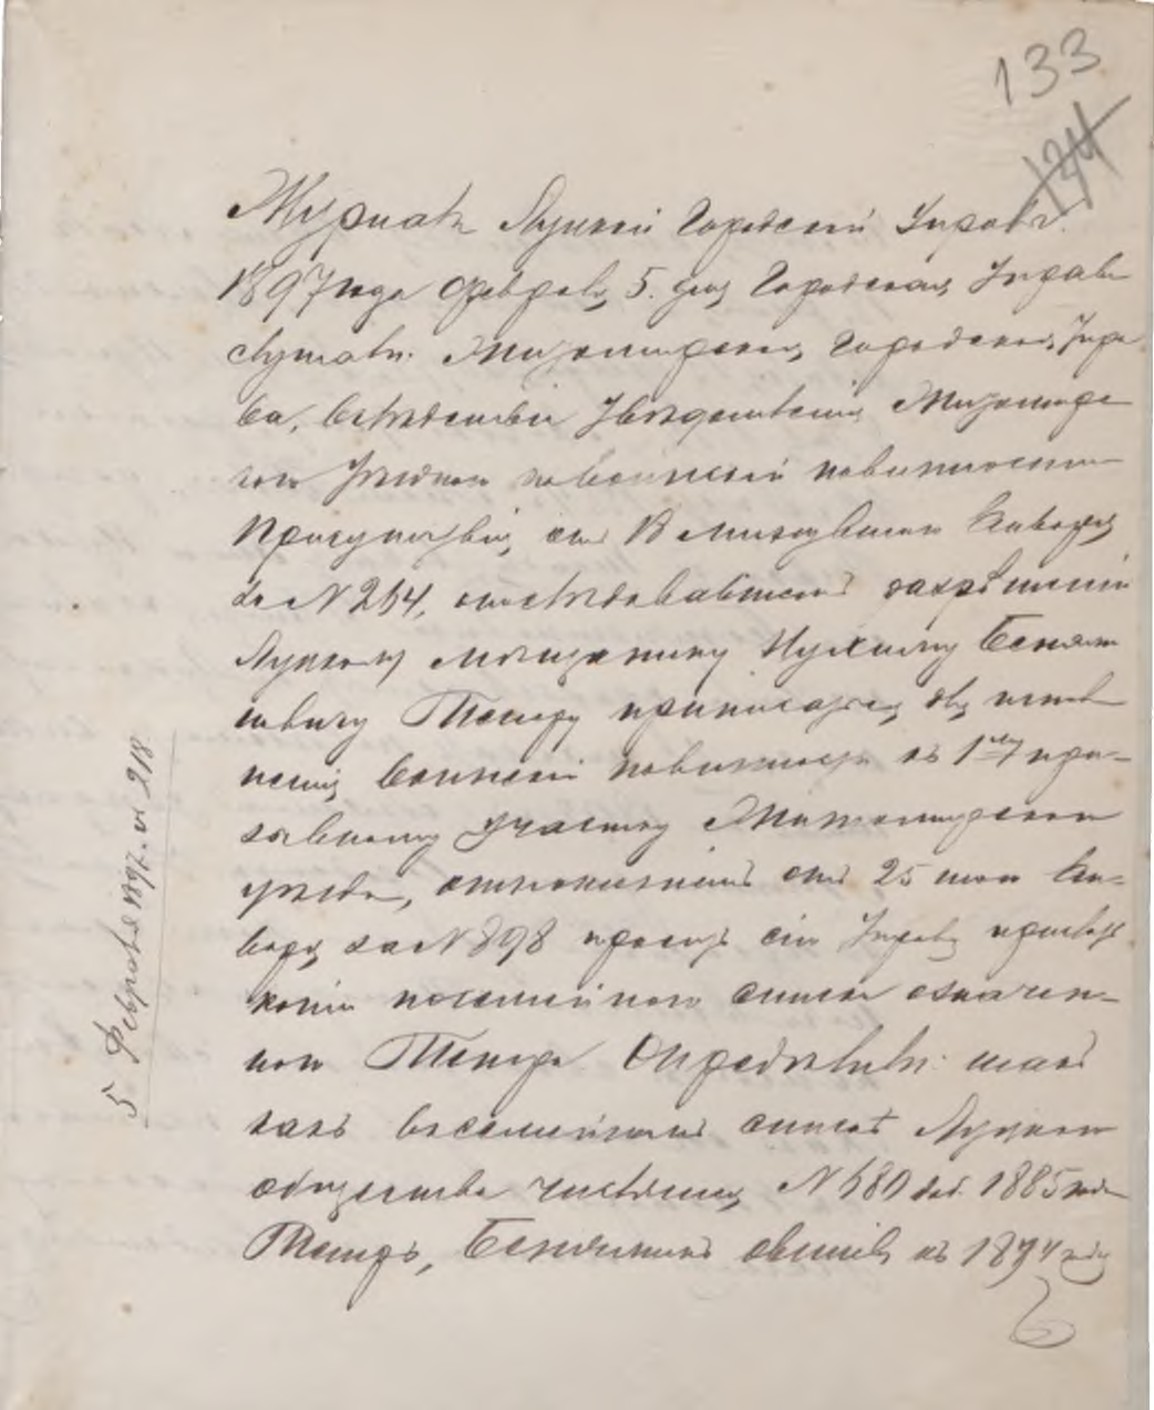 133
134
Журналъ Луцкой Городской Управы.
1897 года Февраля 5. дня Городская Управа
слушали: Житомирская Городская Упра
ва, вслѣдствіе увѣдомленія Житомирс
каго уѣзднаго по воинской повинности
Присутствія, отъ 13 минувшаго Января
за N 264, о послѣдовавшемъ разрѣшеніи
Луцкому мѣщанину Нухиму Беньями
новичу Теперу приписаться для испол
ненія воинской повинности къ 1му при-
зывному участку Житомирскаго
уѣзда, отношеніемъ отъ 25 того Ян-
варя за N 898 проситъ сію Управу прислать
копію посемейнаго списка означен-
наго Тепера. Опредѣлили: такъ
какъ въ семейномъ спискѣ Луцкаго
общества числящійся N 580 1885 года
Теперъ, Беньяминъ въ 1874 году
5 Февраля 1897. N 218